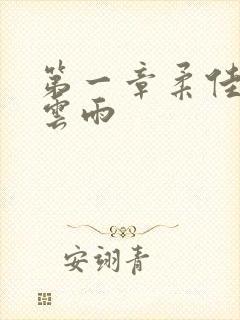 第一章柔佳
雲雨
安翊青